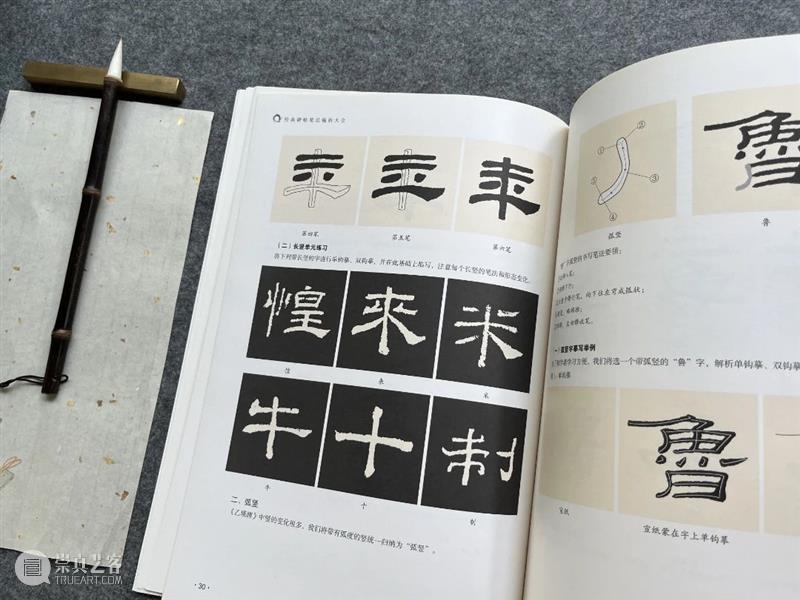 经典碑帖笔法临析大全
第四笔 第五笔 第六笔
（二）长竖单元练习
将下列带长竖的字进行单钩摹、双钩摹，并在此基础上临写，注意每个长竖的笔法和形态变化。
來 米
来 米
牛 十 制
牛 十 制
二、弧竖
《乙瑛碑》中竖的变化很多，我们将带有弧度的竖统一归纳为“弧竖”。
·30·
① ② ③ ③ ④
魯
弧竖 鲁
字弧竖的书写笔法要领：
向下往左弯成弧状；
弧竖字摹写举例
学习方便，我们将选一个带弧竖的“鲁”字，解析单钩摹、双钩摹
魯
宣纸 宣纸蒙在字上单钩摹
崇真艺客
TRUEART.COM